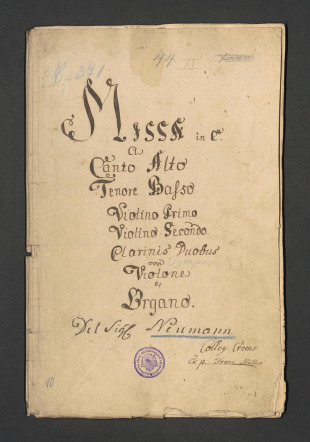 44
MISSA in C.
a
Canto Alto
Tenore Basso
Violino Primo
Violino Secondo
Clarinis Duobus
con
Violone
et
Organo.
Del Sig. Neumann
10